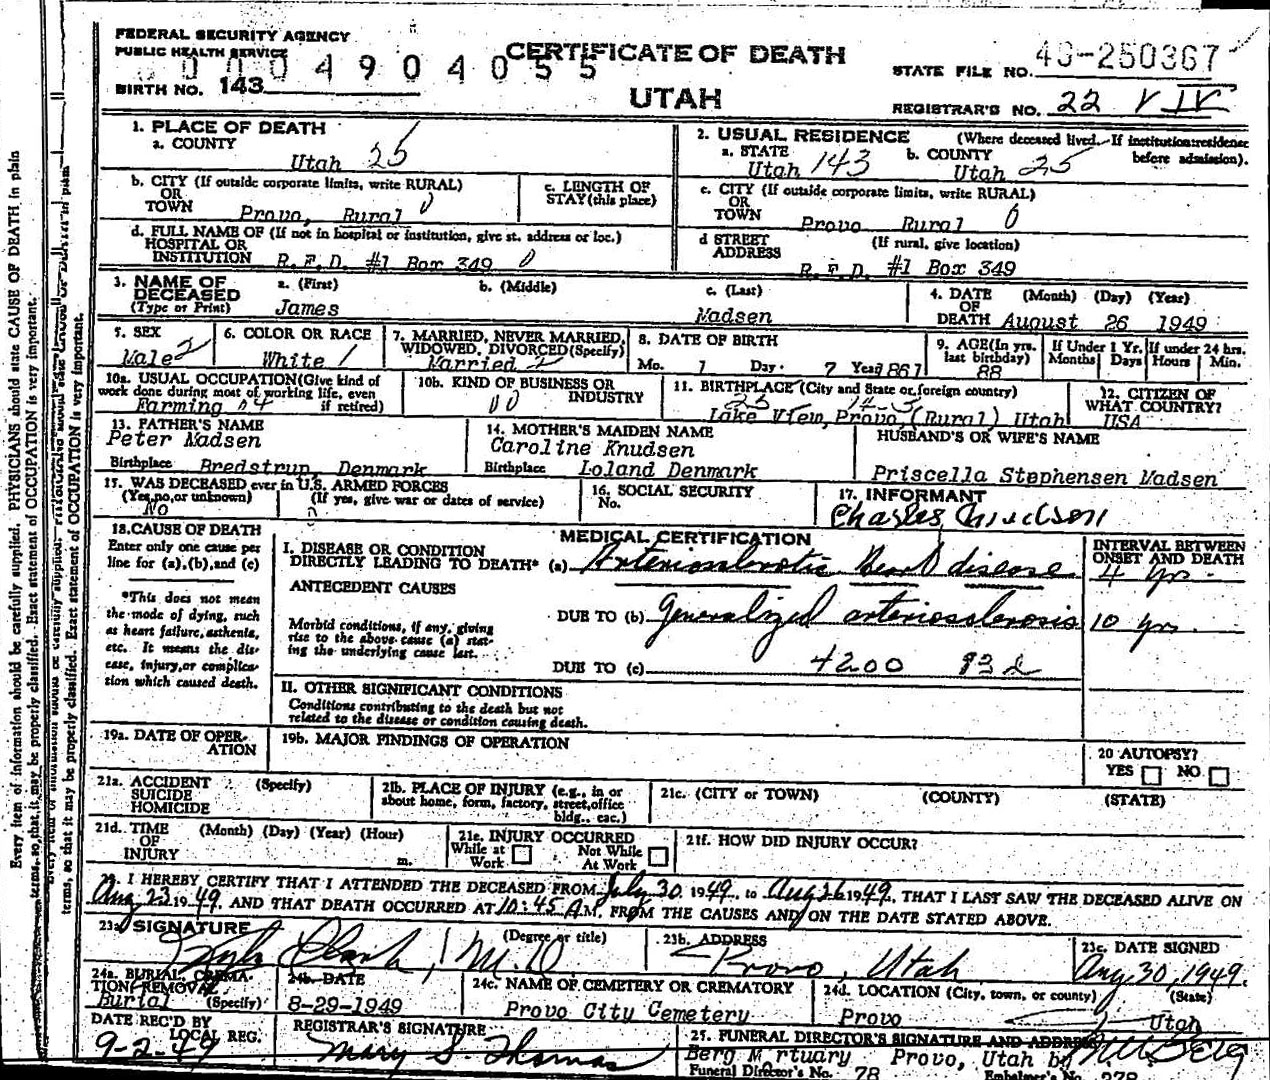 FEDERAL SECURITY AGENCY
PUBLIC HEALTH SERVICE
CERTIFICATE OF DEATH
00004904055
STATE FILE NO. 49-250367
BIRTH NO. 143
UTAH
REGISTRAR'S NO. 22
1. PLACE OF DEATH
a. COUNTY
Utah 25
2. USUAL RESIDENCE (Where deceased lived. If institution:residence before admission).
a. STATE Utah 143 b. COUNTY Utah 25
b. CITY (If outside corporate limits, write RURAL)
OR
TOWN Provo, Rural 0
c. LENGTH OF
STAY (this place)
c. CITY (If outside corporate limits, write RURAL)
OR
TOWN Provo Rural 0
d. FULL NAME OF (If not in hospital or institution, give st. address or loc.)
HOSPITAL OR
INSTITUTION R.F.D. #1 Box 349 0
d STREET (If rural, give location)
ADDRESS R.F.D. #1 Box 349
3. NAME OF DECEASED (Type or Print)
a. (First) b. (Middle) c. (Last)
James Madsen
4. DATE OF DEATH (Month) (Day) (Year)
August 26 1949
5. SEX
Male 2
6. COLOR OR RACE
White 1
7. MARRIED, NEVER MARRIED,
WIDOWED, DIVORCED (Specify)
Married 2
8. DATE OF BIRTH
Mo. 1 Day. 7 Year 1861
9. AGE (In yrs. last birthday)
88
If Under 1 Yr. Months Days
If under 24 hrs. Hours Min.
10a. USUAL OCCUPATION (Give kind of
work done during most of working life, even
if retired)
Farming
10b. KIND OF BUSINESS OR
INDUSTRY
11. BIRTHPLACE (City and State or foreign country)
Lake View, Provo, (Rural) Utah
12. CITIZEN OF
WHAT COUNTRY?
USA
13. FATHER'S NAME
Peter Madsen
Birthplace Bredstrup, Denmark
14. MOTHER'S MAIDEN NAME
Caroline Knudsen
Birthplace Loland Denmark
HUSBAND'S OR WIFE'S NAME
Priscella Stephensen Madsen
15. WAS DECEASED ever in U.S. ARMED FORCES
(Yes, no, or unknown) (If yes, give war or dates of service)
No
16. SOCIAL SECURITY
No.
17. INFORMANT
Charles
18. CAUSE OF DEATH
Enter only one cause per
line for (a), (b), and (c)
MEDICAL CERTIFICATION
INTERVAL BETWEEN
ONSET AND DEATH
I. DISEASE OR CONDITION
DIRECTLY LEADING TO DEATH* (a) Arteriosclerotic Heart disease 4 yrs.
*This does not mean
the mode of dying, such
as heart failure, asthenia,
etc. It means the dis-
ease, injury, or complica-
tion which caused death.
ANTECEDENT CAUSES
DUE TO (b) Generalized arteriosclerosis 10 yrs.
Morbid conditions, if any, giving
rise to the above cause (a) stat-
ing the underlying cause last.
DUE TO (c) 4200 932
II. OTHER SIGNIFICANT CONDITIONS
Conditions contributing to the death but not
related to the disease or condition causing death.
19a. DATE OF OPER-
ATION
19b. MAJOR FINDINGS OF OPERATION
20 AUTOPSY?
YES NO
21a. ACCIDENT (Specify)
SUICIDE
HOMICIDE
21b. PLACE OF INJURY (e.g., in or
about home, form, factory, street, office
bldg., etc.)
21c. (CITY or TOWN) (COUNTY) (STATE)
21d. TIME (Month) (Day) (Year) (Hour)
OF
INJURY m.
21e. INJURY OCCURRED
While at Work Not While At Work
21f. HOW DID INJURY OCCUR?
22. I HEREBY CERTIFY THAT I ATTENDED THE DECEASED FROM July 30 1949, to Aug 26 1949, THAT I LAST SAW THE DECEASED ALIVE ON
Aug 23 1949, AND THAT DEATH OCCURRED AT 10:45 A.M. FROM THE CAUSES AND ON THE DATE STATED ABOVE.
23a SIGNATURE (Degree or title)
Clark, M.D.
23b. ADDRESS
Provo, Utah
23c. DATE SIGNED
Aug. 30, 1949.
24a. BURIAL, CREMA-
TION, REMOVAL
Burial (Specify)
24b. DATE
8-29-1949
24c. NAME OF CEMETERY OR CREMATORY
Provo City Cemetery
24d. LOCATION (City, town, or county) (State)
Provo Utah
DATE REC'D BY
LOCAL REG.
9-2-49
REGISTRAR'S SIGNATURE
Mary S. Thomas
25. FUNERAL DIRECTOR'S SIGNATURE AND ADDRESS
Berg Mortuary Provo, Utah by Berg
Funeral Director's No. 78 Embalmer's No. 278
Every item of information should be carefully supplied. PHYSICIANS should state CAUSE OF DEATH in plain
terms, so that it may be properly classified. Exact statement of OCCUPATION is very important.